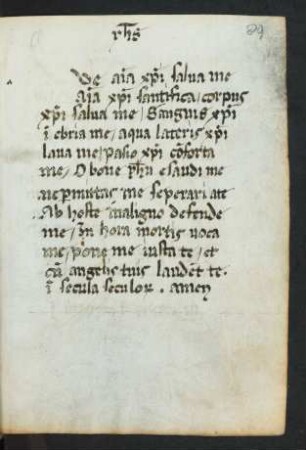 yhs
29
Ve aīa xp̄i salua me
aīa xp̄i santifica, corpus
xp̄i salua me, Sanguis xp̄i
ī ebria me, aqua lateris xp̄i
laua me, pasio xp̄i cōforta
me, O bone yh̄u esaudi me
ne permittas me seperari a te
Ab hoste maligno defende
me, In hora mortis uoca
me, pone me iusta te, et
cū angelis tuis laudēt te.
ī secula seculor. amen